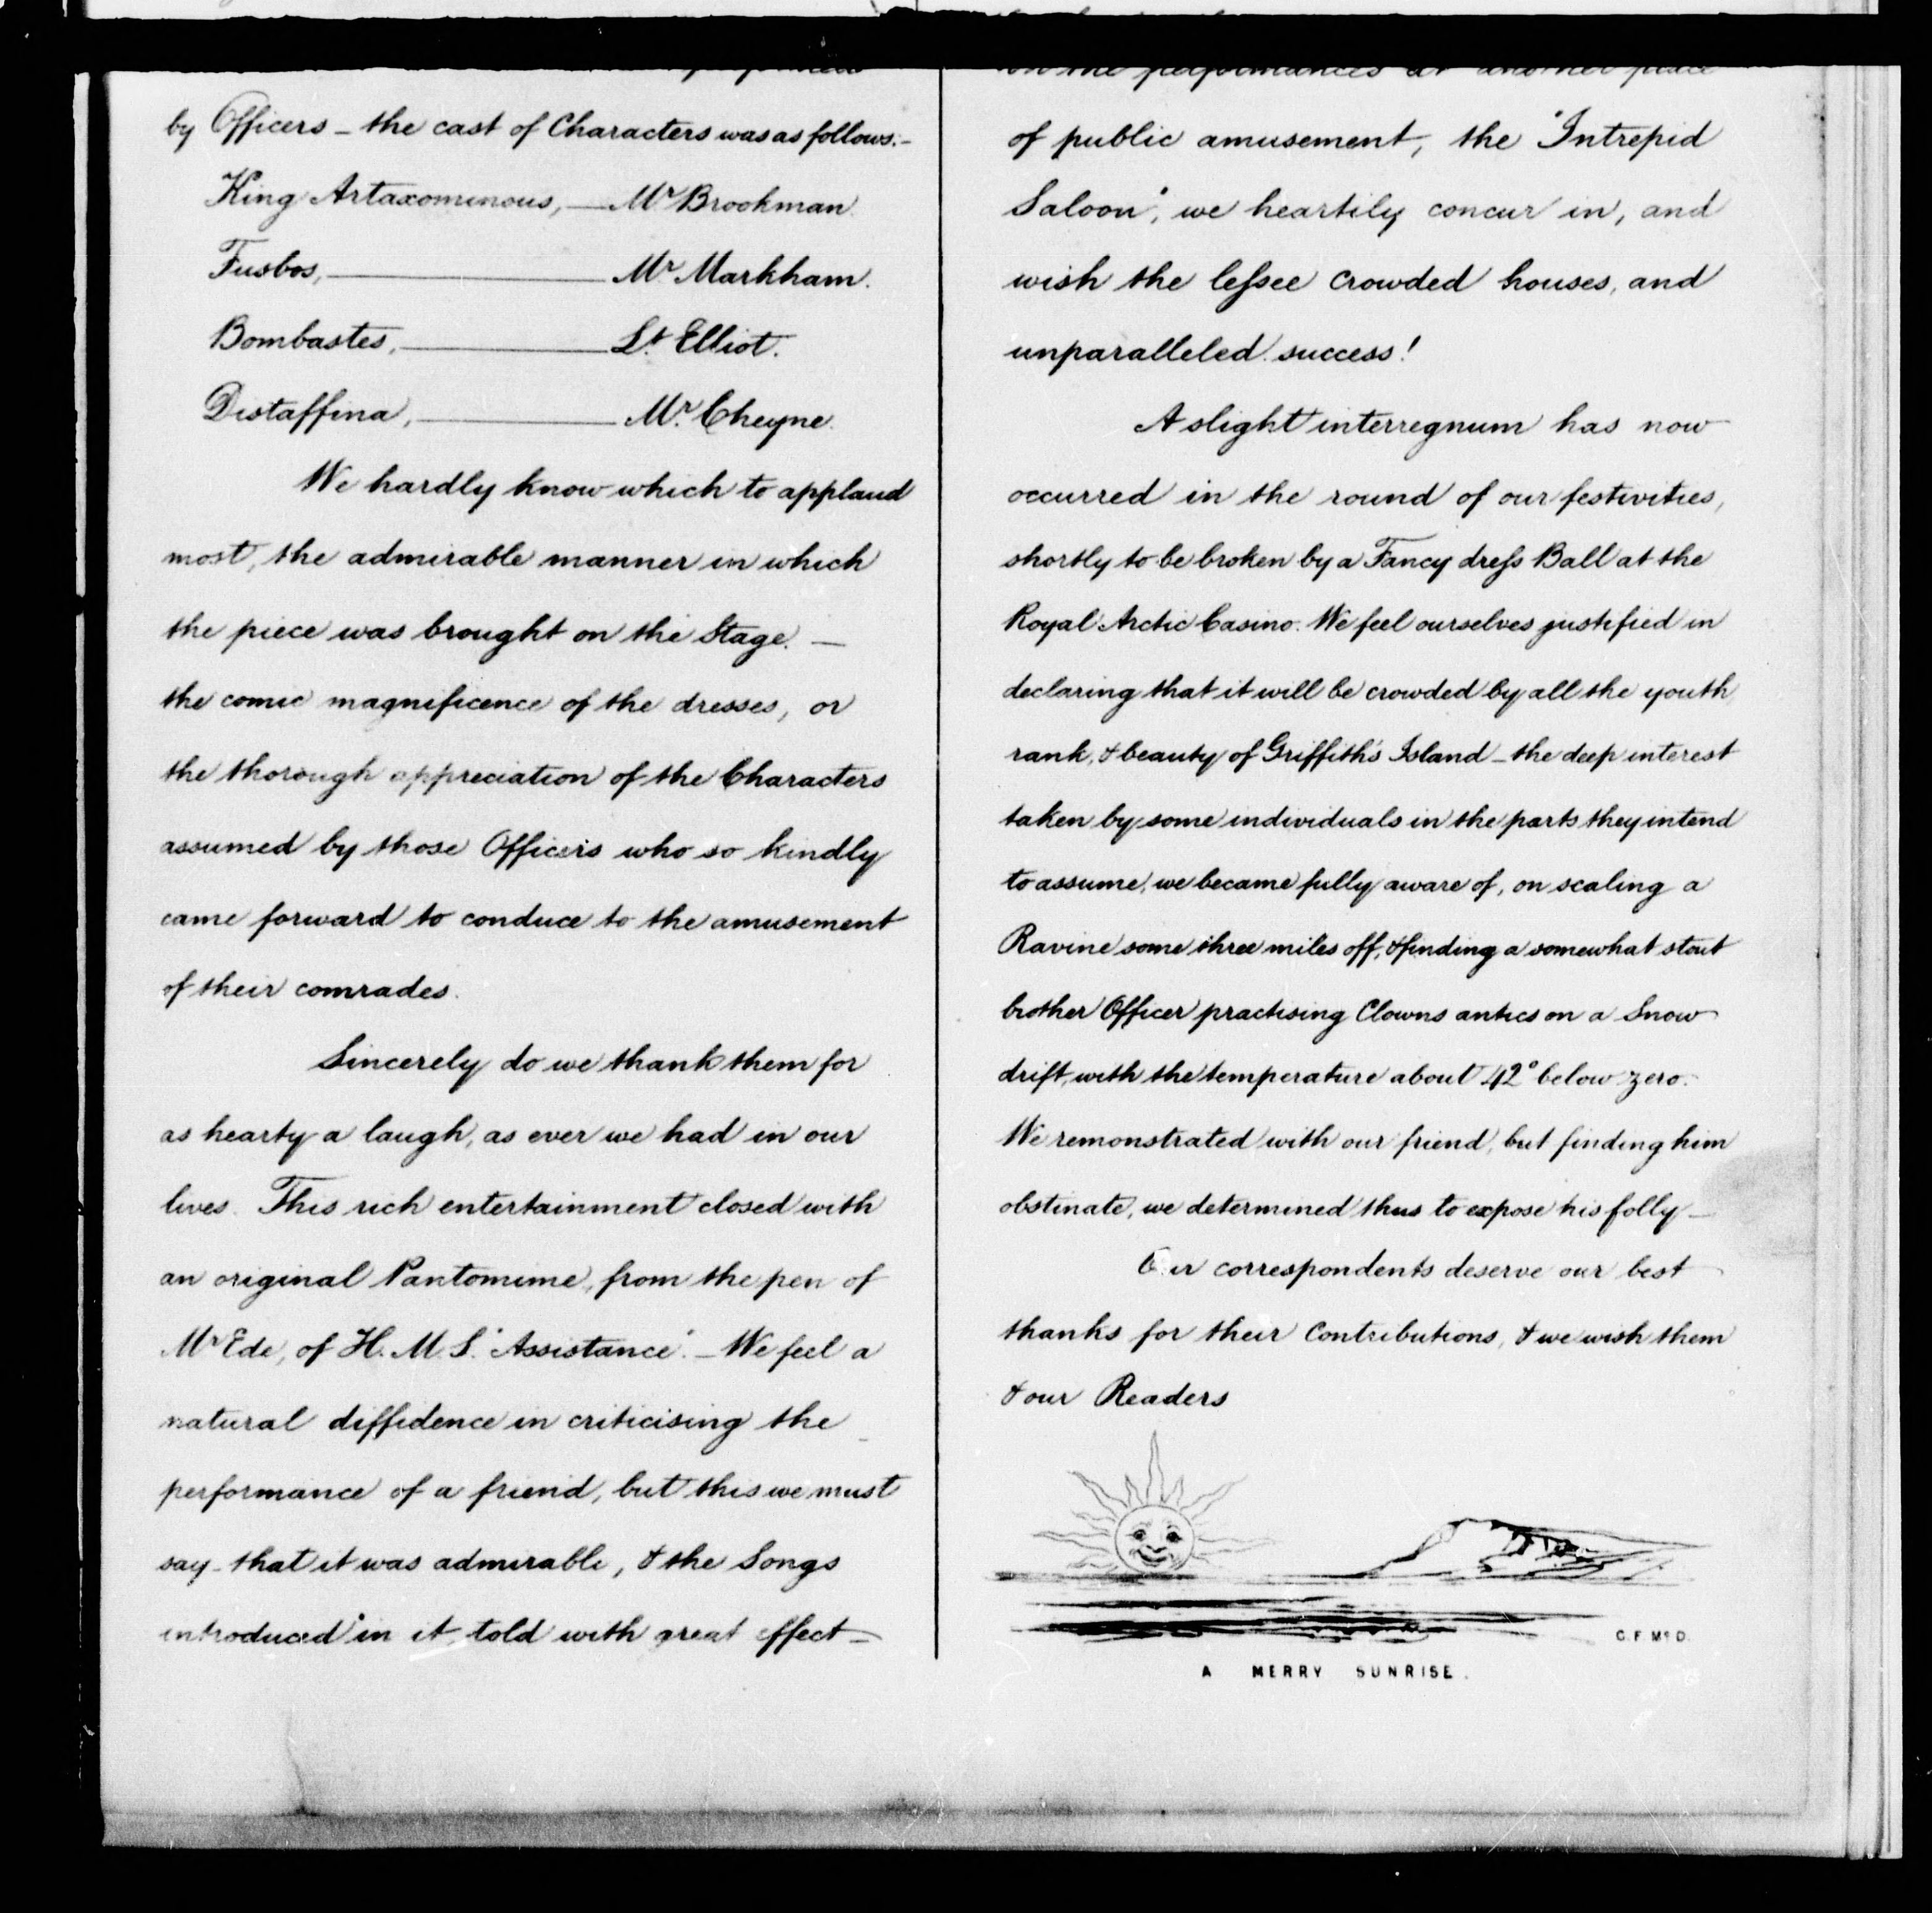 by Officers – the cast of Characters was as follows:–
King Artaxominous, — Mr Brookman.
Fusbos, — Mr Markham.
Bombastes, — Lt. Elliot.
Distaffina, — Mr. Cheyne.
We hardly know which to applaud
most, the admirable manner in which
the piece was brought on the Stage. —
the comic magnificence of the dresses, or
the thorough appreciation of the Characters
assumed by those Officers who so kindly
came forward to conduce to the amusement
of their comrades.
Sincerely do we thank them for
as hearty a laugh, as ever we had in our
lives. This rich entertainment closed with
an original Pantomime, from the pen of
Mr Ede, of H.M.S. "Assistance". – We feel a
natural diffidence in criticising the
performance of a friend, but this we must
say – that it was admirable, & the Songs
introduced in it, told with great effect –
on the performances at another place
of public amusement, the "Intrepid
Saloon", we heartily concur in, and
wish the leſsee crowded houses, and
unparalleled success!
A slight interregnum has now
occurred in the round of our festivities,
shortly to be broken by a Fancy dreſs Ball at the
Royal Arctic Casino. We feel ourselves justified in
declaring that it will be crowded by all the youth,
rank, & beauty of Griffith's Island – the deep interest
taken by some individuals in the parts they intend
to assume, we became fully aware of, on scaling a
Ravine some three miles off, & finding a somewhat stout
brother Officer practising Clowns antics on a Snow
drift, with the temperature about 42° below zero.
We remonstrated with our friend, but finding him
obstinate, we determined thus to expose his folly –
Our correspondents deserve our best
thanks for their Contributions, & we wish them
& our Readers
C. F. McD.
A MERRY SUNRISE.